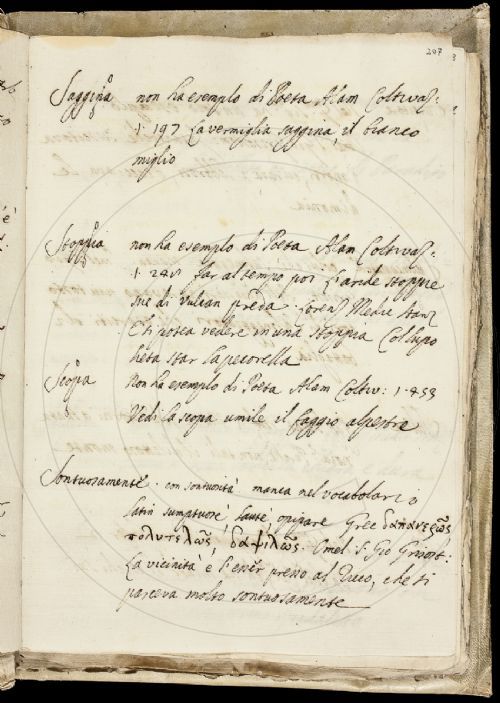 207
Saggina non ha esemplo di Poeta Alam Coltivaz:
1· 197 La vermiglia saggina, il bianco
miglio
Stoppia non ha esemplo di Poeta Alam Coltivaz:
far al tempo poi L'aride stoppie
Sue di Vulcan preda · Lorenz Medic Stanz
E ti potea vedere in una stoppia Col lupo
lieta star la pecorella
Scopa Non ha esemplo di Poeta Alam Coltiv: 1·
Vedi la scopa umile il faggio alpestre
Sontuosamente · con sontuosità manca nel vocabolario
Latin sumptuose, laute, opipare Grec δαπανεςῶς,
πολυτελῶς, δαψιλῶς. Omel S. Gio Grisost:
La vicinità è l'esser presso al Ricco, che ti
pareva molto sontuosamente